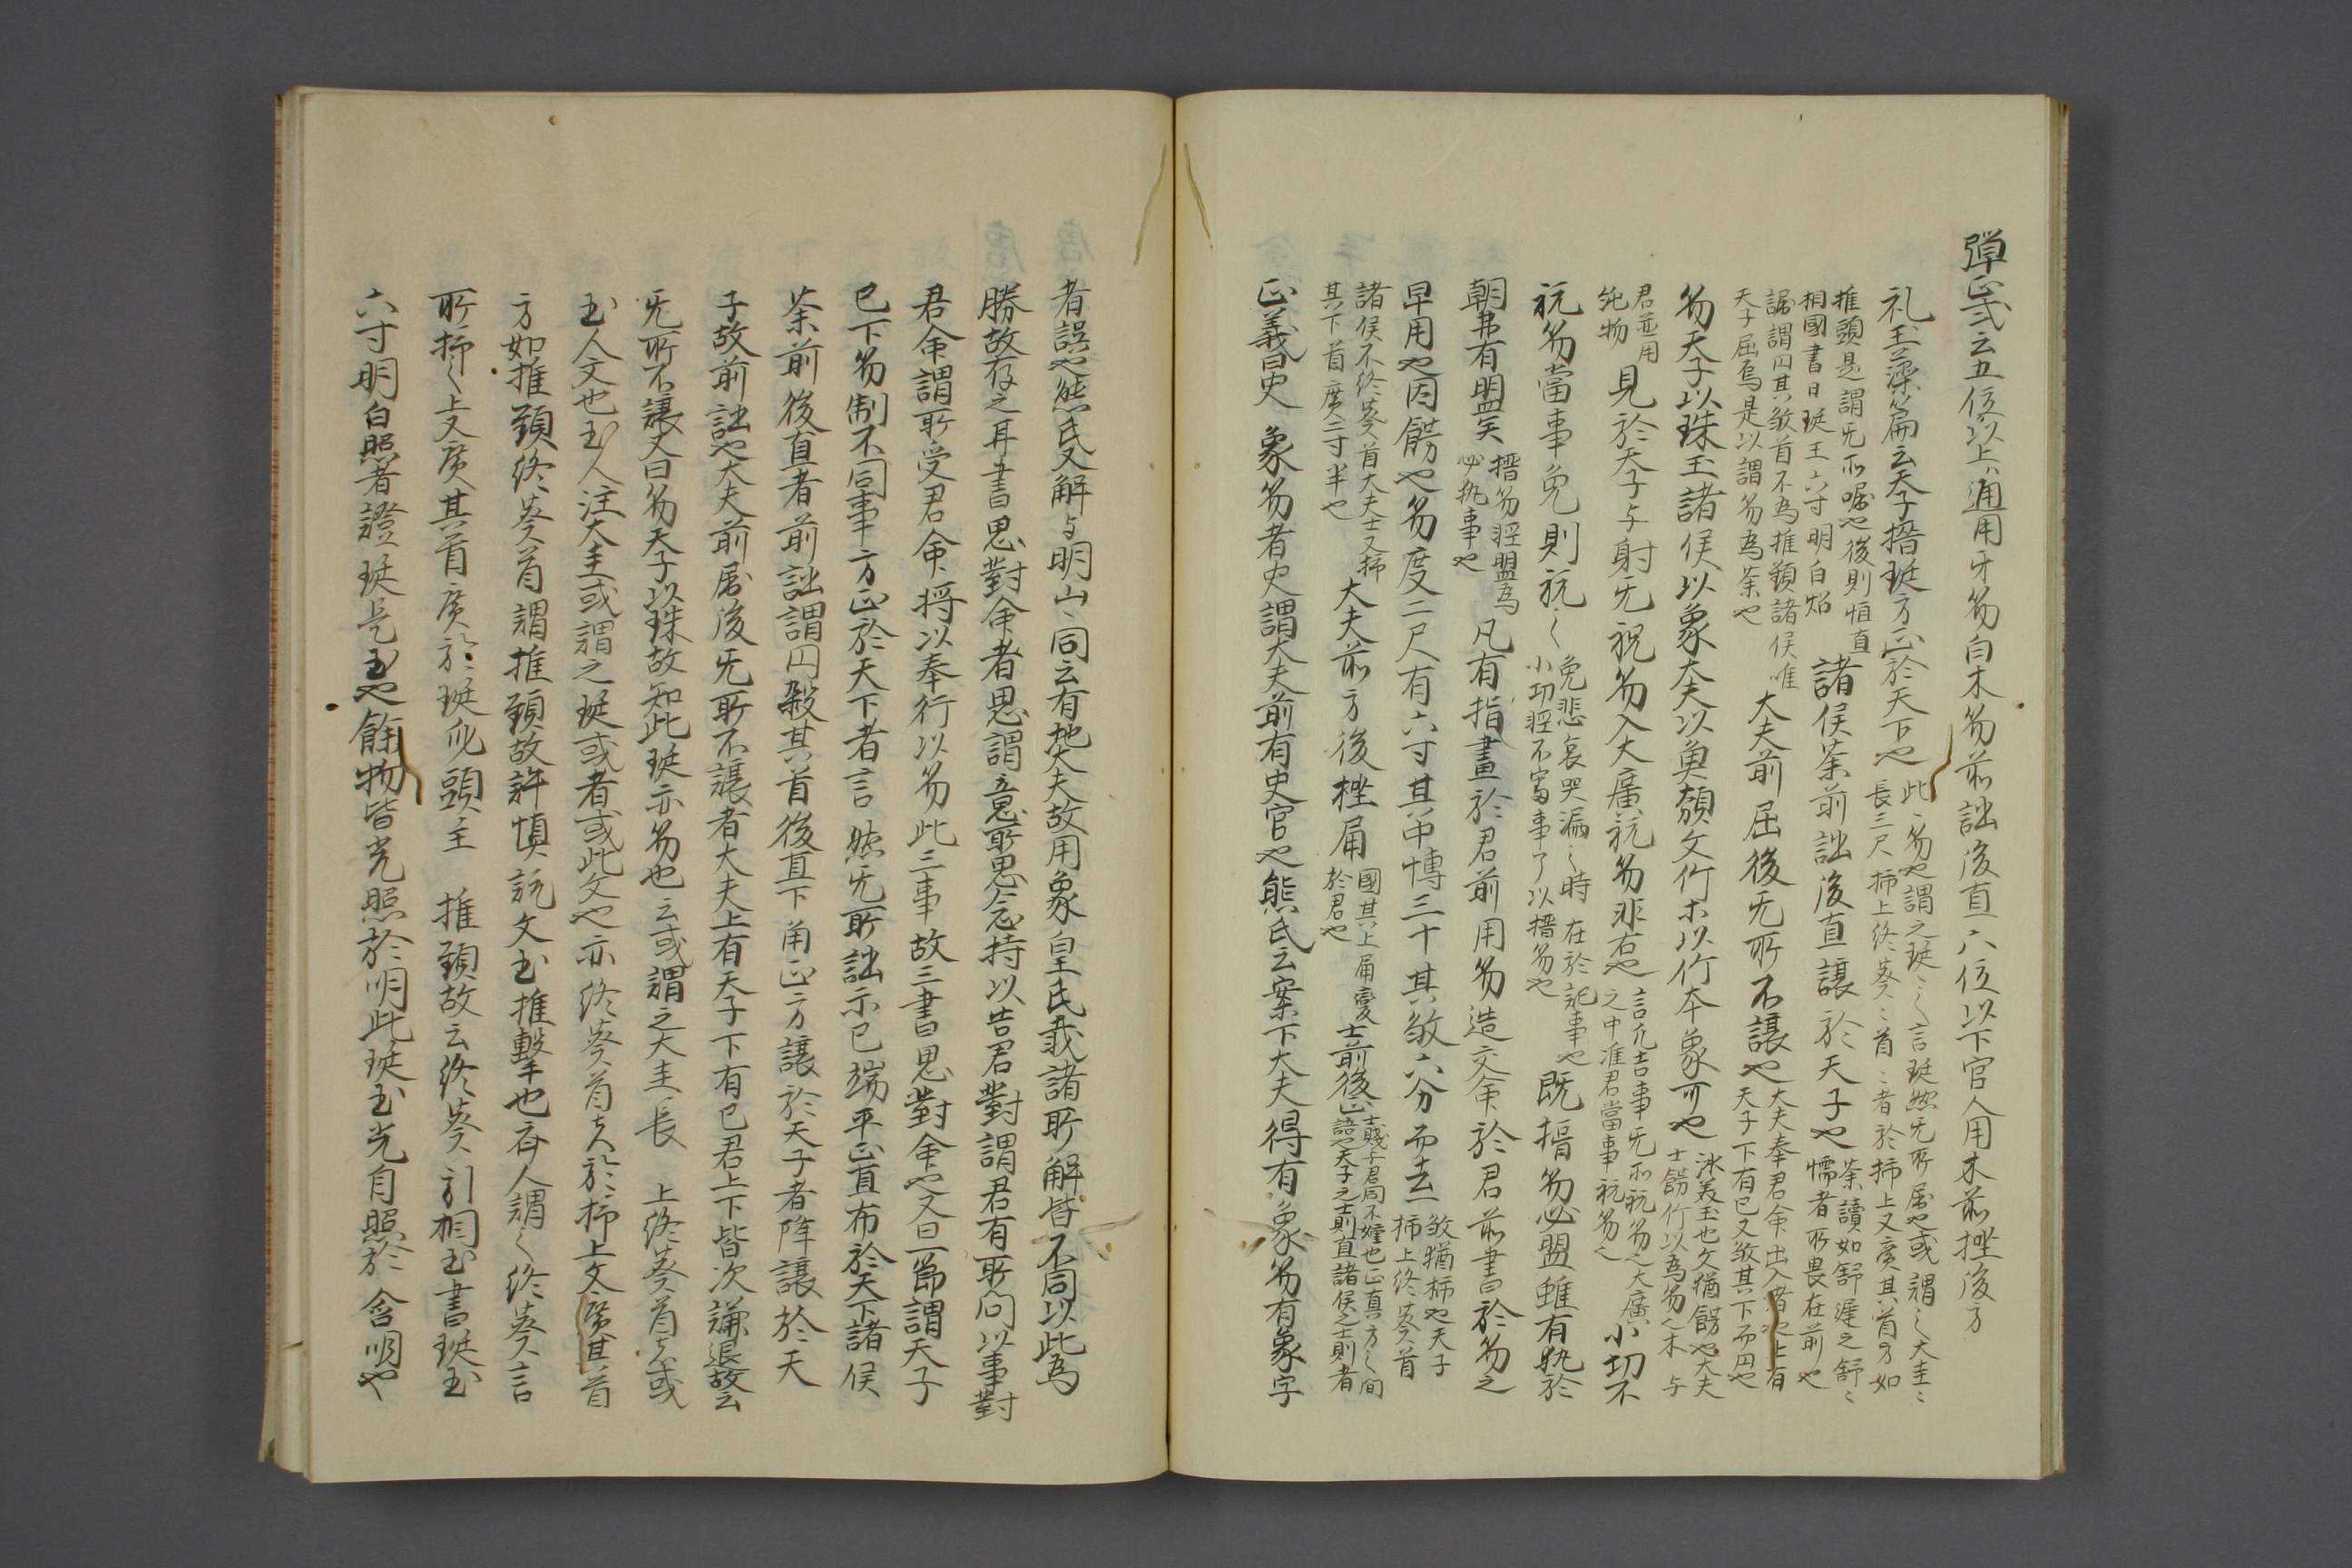 弾正式云五位以上通用牙笏白木笏前詘後直六位以下官人用木前挫後方
礼玉藻篇云天子搢珽方正於天下也
此〻笏也謂之珽〻之言珽然无所屈也或謂之大圭〻
長三尺抒上終葵〻首〻者於抒上又廣其首方如
推頭是謂无所屈也後則恒直
相國書曰珽玉六寸明白炤
諸侯荼前詘後直讓於天子也
荼讀如舒遲之舒〻
懦者所畏在前也
詘謂円其殺首不為推頭諸侯唯
天子屈焉是以謂笏為荼也
大夫前屈後无所不讓也
大夫奉君命出入者也上有
天子下有已又殺其下而円也
笏天子以珠玉諸侯以象大夫以魚頒文竹士以竹本象可也
沐美玉也文猶餝也大夫
士餝竹以為笏〻木与
君並用
純物
見於天子与射无祝笏入大廣祝笏非古也
言凡吉事无所祝笏之大廣
之中准君當事祝笏之
小切不
祝笏當事免則祝〻
免悲哀哭漏之時在於記事也
小切経不富事了以搢笏也
既搢笏必盥雖有執於
朝弗有盥矣
搢笏経盥為
必執事也
凡有指畫於君前用笏造交命於君前書於笏之
早用也因餝也笏度二尺有六寸其中慱三寸其殺六分而去一
殺猶抒也天子
抒上終葵首
諸侯不終葵首大夫士又抒
其下首廣二寸半也
大夫前方後挫角
國其上角變
於君也
士前後正
士賤与君同不嫌也正真方之间
語也天子之士則直諸侯之士則者
正義曰史象笏者史謂大夫前有史官也熊氏云案下大夫得有象笏有象字
者誤也熊氏又解与明山〻同云有地大夫故用象皇氏載諸所解皆不同以此為
勝故存之耳書思對命者思謂意所思念持以告君對謂君有所问以事對
君命謂所受君命将以奉行以笏此三事故三書曰思對命也又曰一節謂天子
已下笏制不同事方正於天下者言然无所詘示已端平正直布於天下諸侯
荼前後直者前詘謂円殺其首後直下角正方讓於天子者降讓於天
子故前詘也大夫前屈後无所不讓者大夫上有天子下有已君上下皆次謙退故云
无所不讓又曰笏天子以珠故知此珽亦笏也云或謂之大圭長　上終葵首者或
玉人文也玉人注大圭或謂之珽或者或此文也亦終葵首者於抒上文廣其首
方如推頭終葵首謂推頭故許慎説文玉推擊也齊人謂之終葵言
所抒〻上文廣其首廣於珽亦頭主　推頭故云終葵引相玉書珽玉
六寸明白照者證珽是玉也餘物皆光照於明此珽玉光自照於含明也